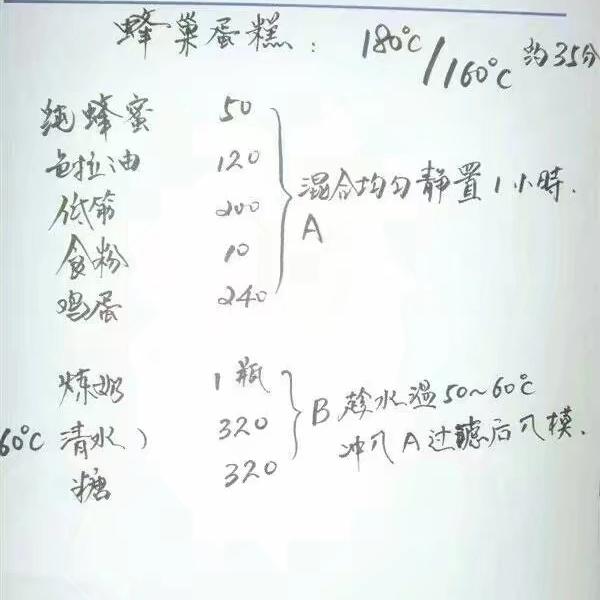 蜂巢蛋糕： 180℃/160℃ 约35分
纯蜂蜜 50
色拉油 120
低筋 200
食粉 10
鸡蛋 240
} A 混合均匀静置1小時.
炼奶 1瓶
60℃ 清水） 320
糖 320
} B 趁水温50~60℃
冲入A过聽后入模.